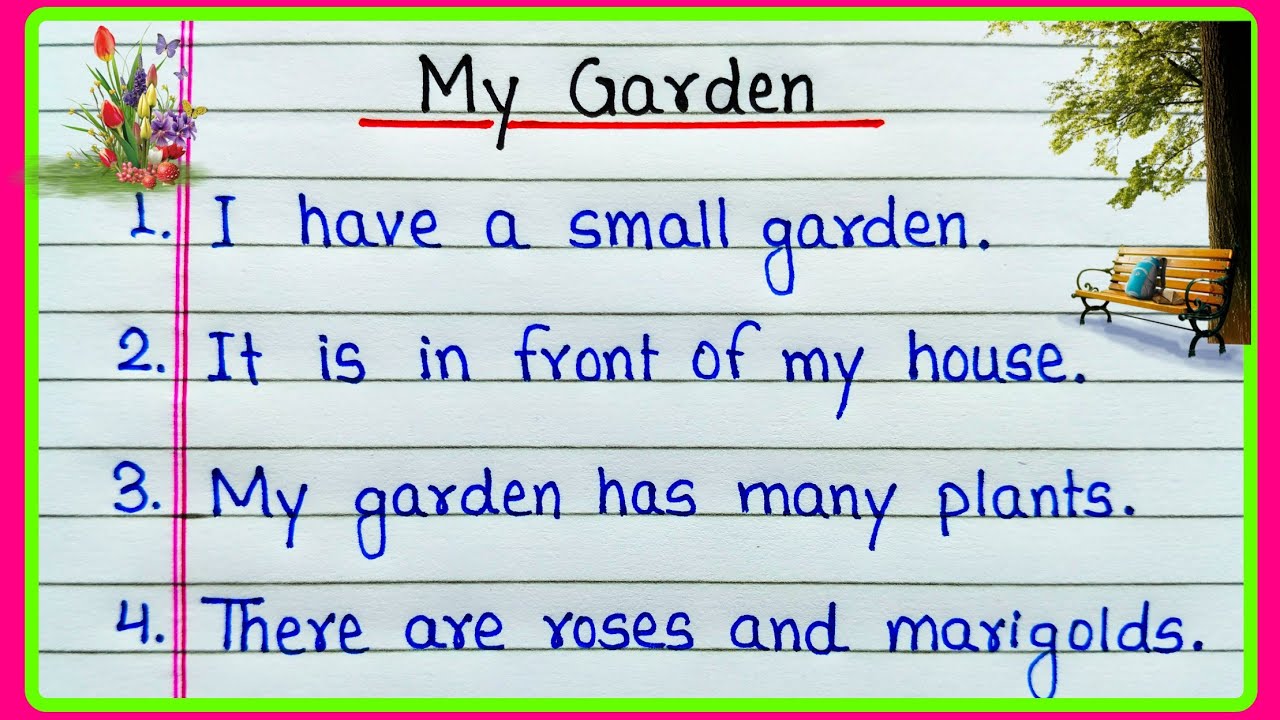 My Garden
1. I have a small garden.
2. It is in front of my house.
3. My garden has many plants.
4. There are roses and marigolds.